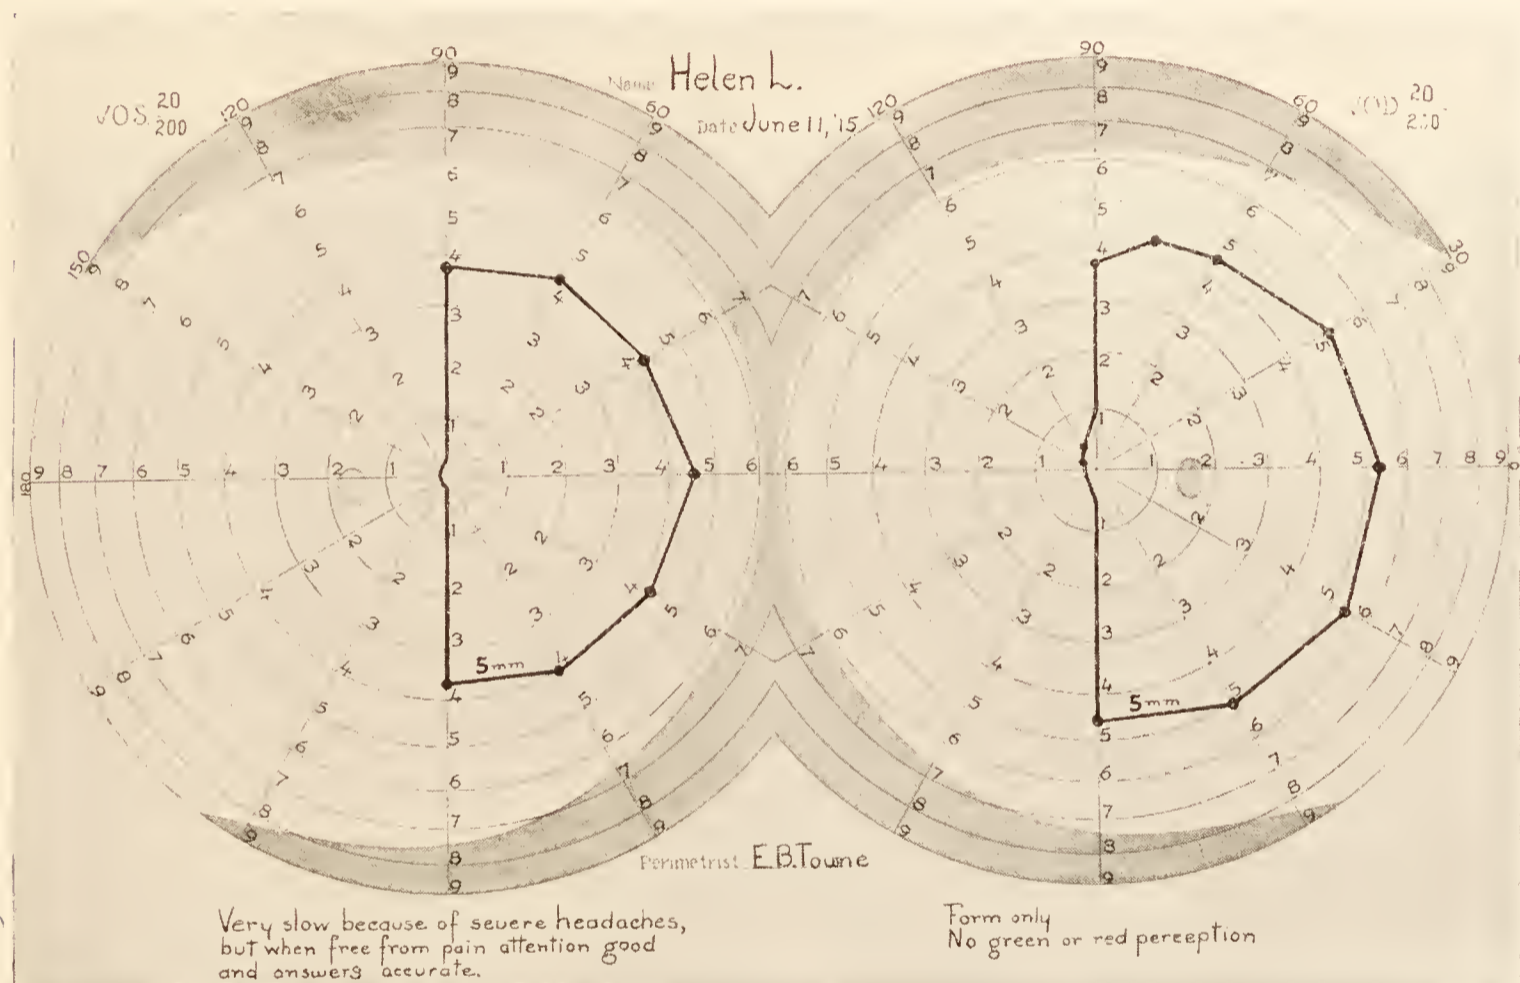 90
90
Name Helen L.
VOS 20
200
120
60
120
60
VOD 20
200
Date June 11, '15
150
30
9 8 7 6 5 4 3 2 1 1 2 3 4 5 6 6 5 4 3 2 1 1 2 3 4 5 6 7 8 9
180
5mm
5mm
Perimetrist E.B.Towne
Very slow because of severe headaches,
but when free from pain attention good
and answers accurate.
Form only
No green or red perception